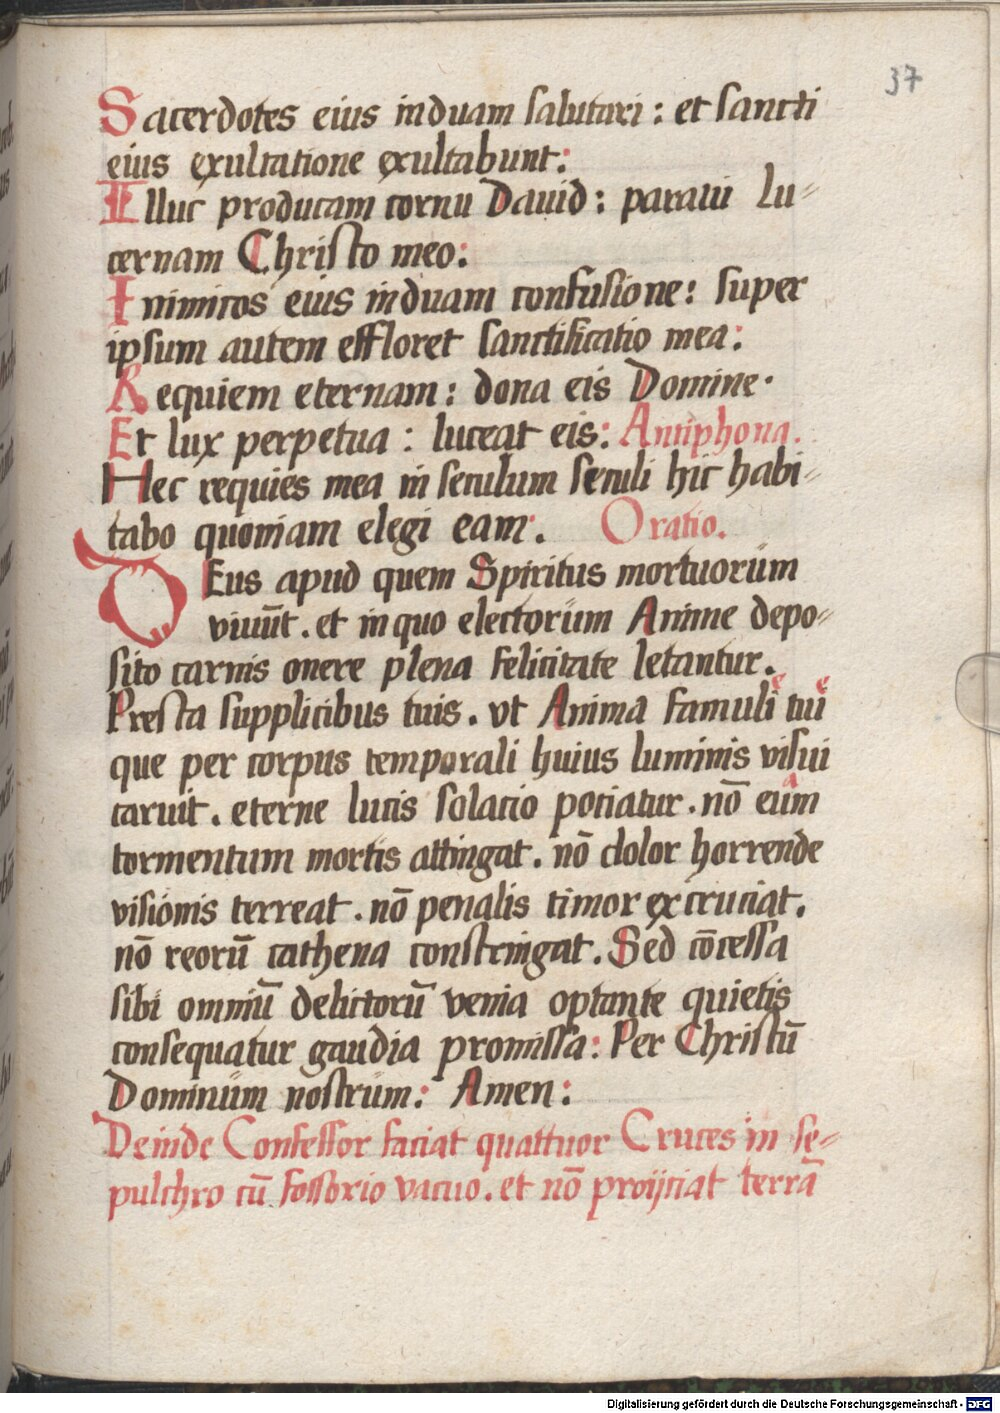 37
Sacerdotes eius induam salutari: et sancti
eius exultatione exultabunt:
Illuc producam cornu David: paraui lu-
cernam Christo meo:
Inimicos eius induam confusione: super
ipsum autem effloret sanctificatio mea:
Requiem eternam: dona eis Domine.
Et lux perpetua: luceat eis: Antiphona.
Hec requies mea in seculum seculi hic habi-
tabo quoniam elegi eam. Oratio.
DEus apud quem Spiritus mortuorum
viuūt. et in quo electorum Anime depo-
sito carnis onere plena felicitate letantur.
Presta supplicibus tuis. vt Anima famuli e tui e
que per corpus temporali huius luminis visui
caruit. eterne lucis solacio potiatur. nō eum a
tormentum mortis attingat. nō dolor horrende
visionis terreat. nō penalis timor excruciat.
nō reorū cathena constringat. Sed cōcessa
sibi omniū delictorū venia optante quietis
consequatur gaudia promissa: Per Christū
Dominum nostrum: Amen:
Deinde Confessor faciat quattuor Cruces in se-
pulchro cū fossorio vacuo. et nō proijciat terrā
Digitalisierung gefördert durch die Deutsche Forschungsgemeinschaft - DFG